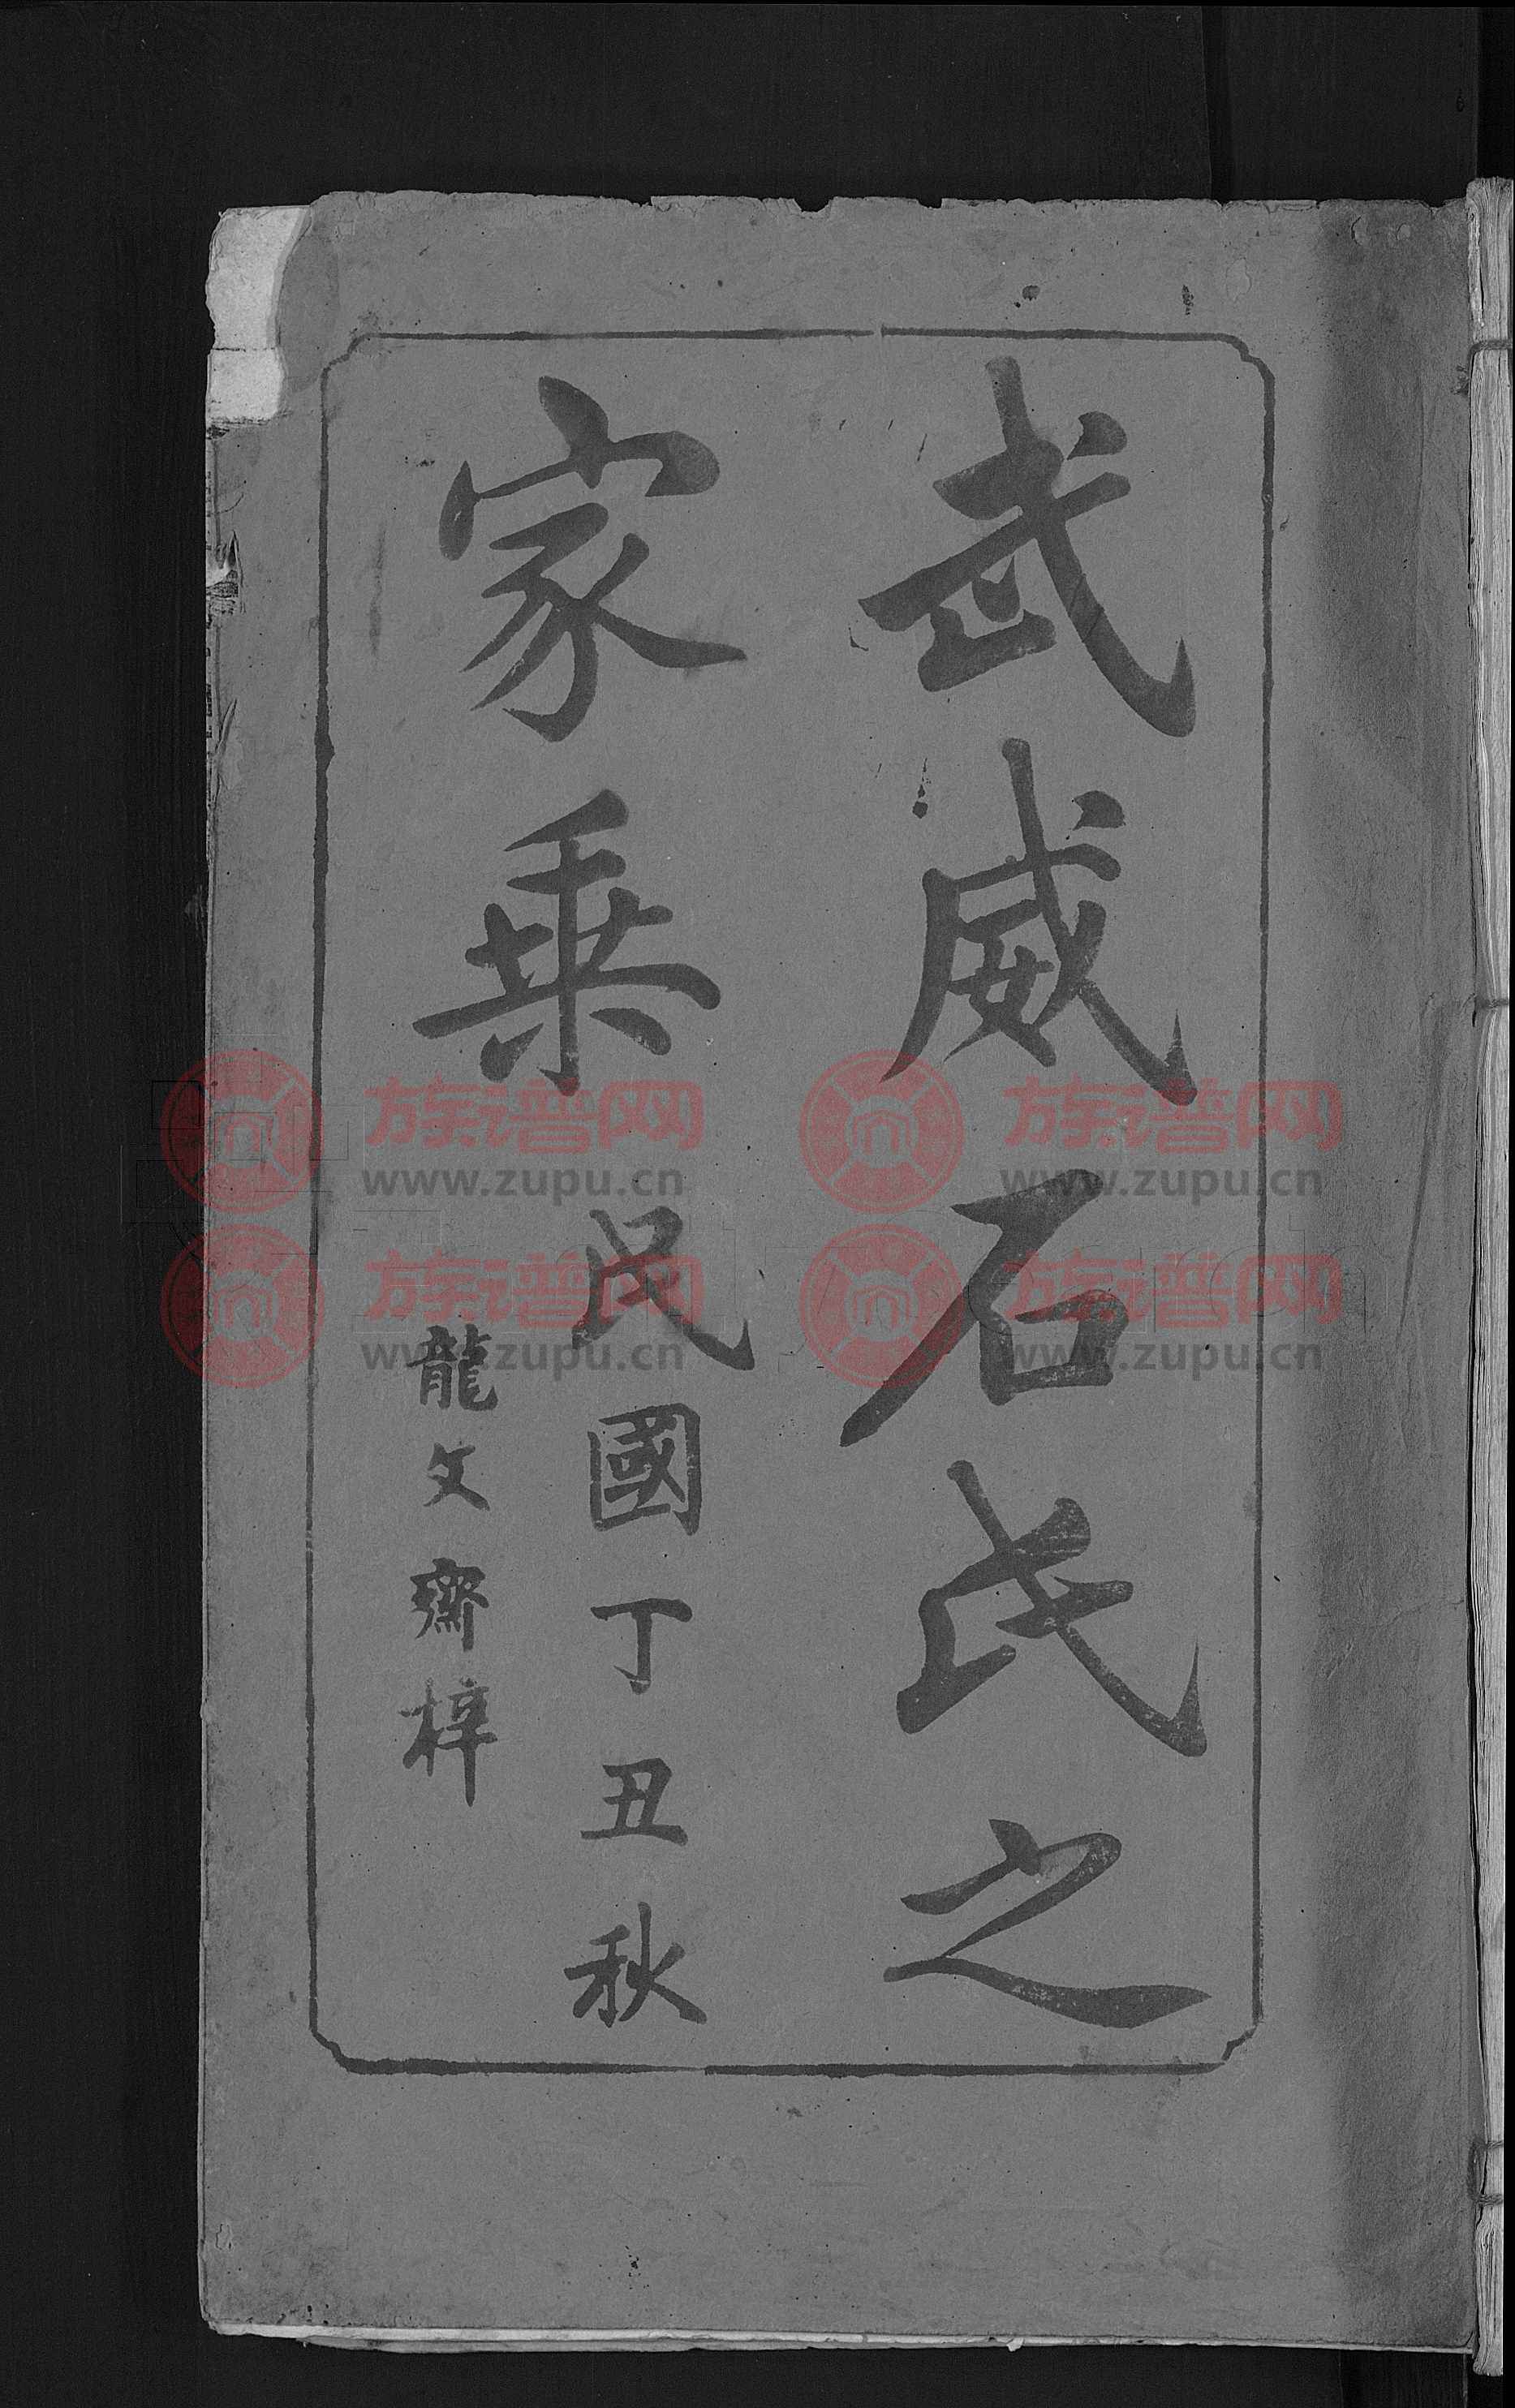 武威石氏之
家乘
民國丁丑秋
龍文齋梓
族谱网 族谱网
www.zupu.cn www.zupu.cn
族谱网 族谱网
www.zupu.cn www.zupu.cn